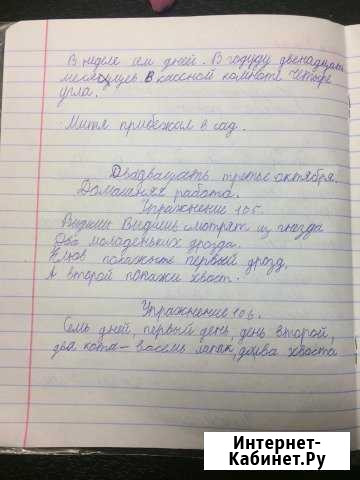 В неделе сем дней. В годуду двенадцать
месяцуев. В кассной комнате четыре
угла.
Митя прибежал в сад.
Двадвацать третье октября.
Домашняя работа.
Упражнение 105.
Видишь Видишь смотрят из гнезда
Два молоденьких дрозда.
Клюв покажыте первый дрозд,
А второй покажи хвост.
Упражнение 106.
Семь дней, первый день, день второй,
два кота – восемь лапык, два хваста
Интернет-
Кабинет.Ру